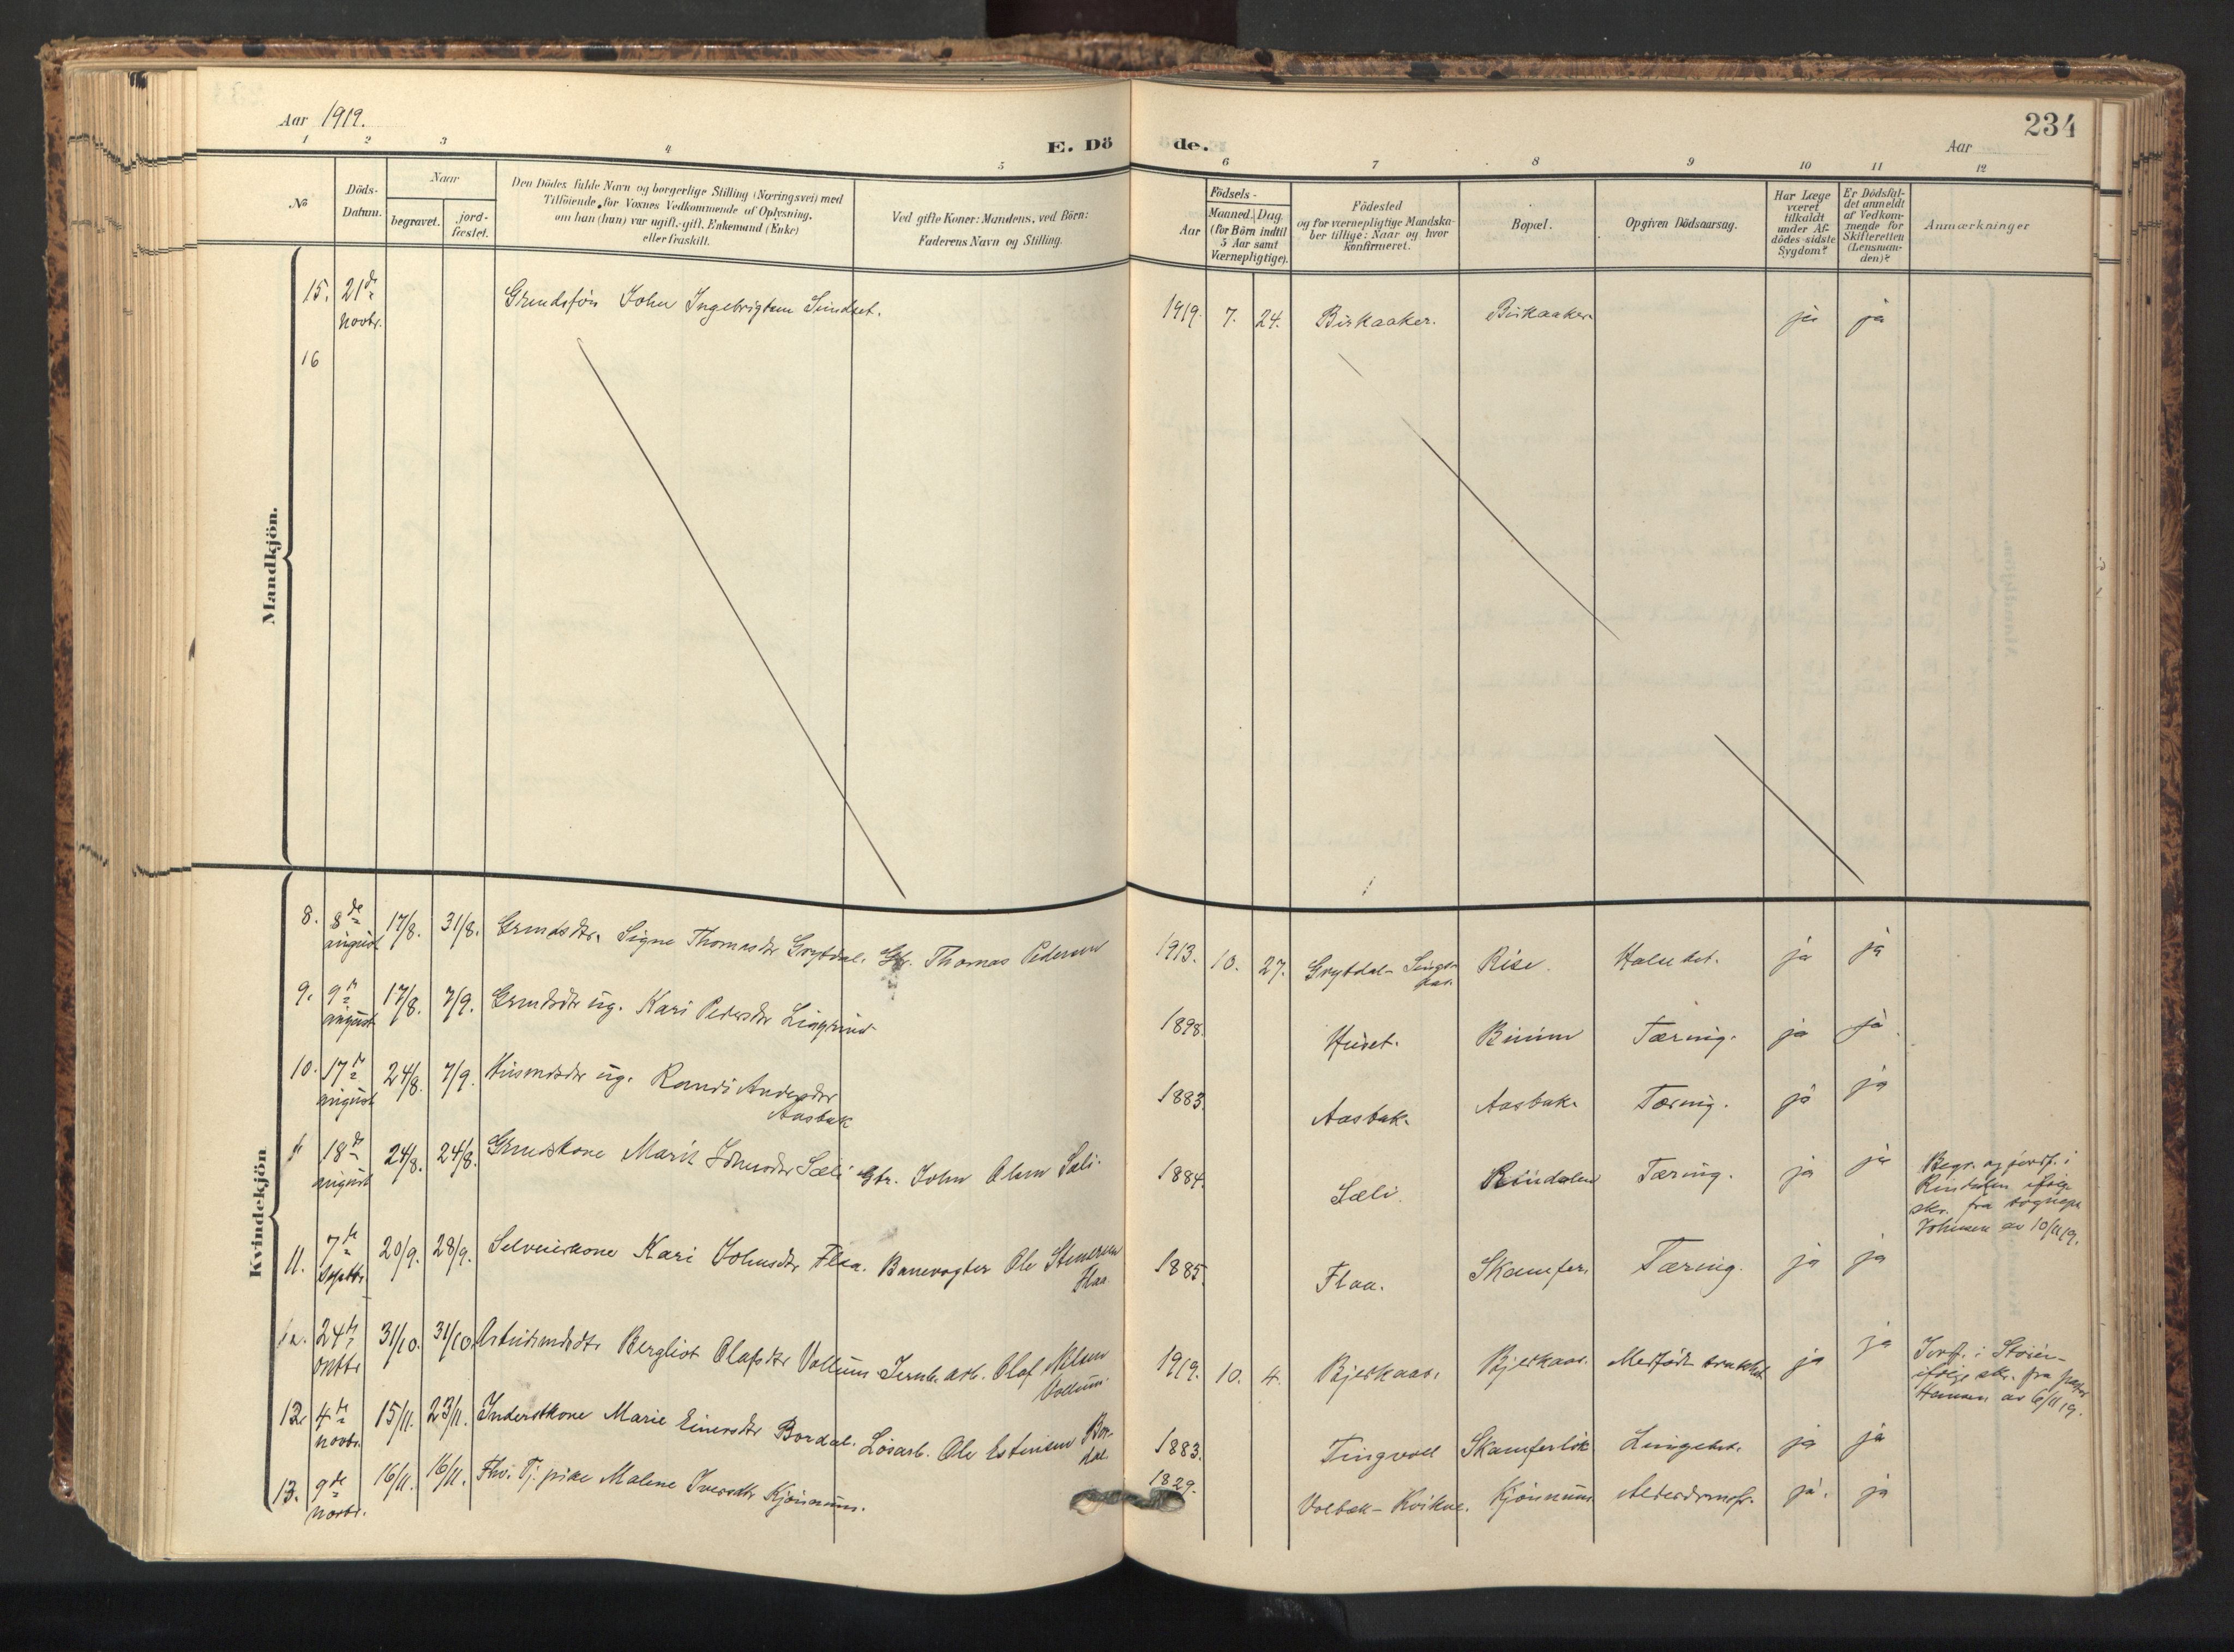 Aar 1919.
E. Döde.
Aar
234
1 2 3 4 5 6 7 8 9 10 11 12
No
Döds-
Datum.
Naar
begravet.
jord-
fæstet.
Den Dödes fulde Navn og borgerlige Stilling (Næringsvei) med
Tilföiende for Voxnes Vedkommende af Oplysning,
om han (hun) var ugift, gift, Enkemand (Enke)
eller fraskilt.
Ved gifte Koner: Mandens, ved Börn:
Faderens Navn og Stilling.
Födsels-
Aar
Maaned. Dag.
(for Börn indtil
5 Aar samt
Værnepligtige).
Födested
og for værnepligtige Mandska-
ber tillige: Naar og hvor
konfirmeret.
Bopæl.
Opgiven Dödsaarsag.
Har Læge
været
tilkaldt
under Af-
dödes sidste
Sygdom?
Er Dödsfal-
det anmeldt
af Vedkom-
mende for
Skifteretten
(Lensman-
den)?
Anmærkninger
Mandkjön.
15. 21de Grmdsfön John Ingebrigtsen Sundset. 1919. 7. 24. Birkaaker. Birkaaker. ja ja
Novbr.
16
Kvindekjön
8. 8de 17/8. 31/8. Grmdsdtr. Signe Thomasdtr Grytdal. Gbr. Thomas Pedersen 1913. 10. 27. Grytdal - Sings- Rise. Halsebet. ja ja
august aas.
9. 9de 17/8. 7/9. Grmdsdtr ug. Kari Pedersdtr 1898. Huset. Tæring. ja ja.
august
10. 17de 24/8. 7/9. Husmdsdtr ug. Randi Andersdtr 1883. Aasbak. Aasbak. Tæring. ja ja
august Aasbak
18de 24/8. 24/8. Grmdskone Marit Johnsdtr Sæli Gbr. John Olsen Sæli. 1884. Sæli. Rindalen Tæring. ja ja Begr. og jordf. i
august Rindalen ifølge
skr. fra sognepr.
Johnsen av 10/11 19.
11. 7de 20/9. 28/9. Selveierkone Kari Johnsdtr Flaa. Banevogter Ole Stenersen 1885. Flaa. Skamfer. Tæring. ja ja
Septbr. Flaa
24de 31/10. 31/10. Arbeidsmdsdtr Bergliot Olafsdtr Vollum Jernb. arb. Olaf Nelsen 1919. 10. 4. Bjerkaas. Bjerkaas. Medfödt svakhet ja ja Jordf. i Stören
oktbr. Vollum. ifölge skr. fra pastor
Hansen av 6/11 19.
12. 4de 15/11. 23/11. Inderstkone Marie Einersdtr Bordal. Lösarb. Ole Estensen Bor- 1883. Tingvoll Skamferlök Lungebet. ja ja
Novbr. dal.
13. 9de 16/11. 16/11. Fhv. Tj. pike Malene Iversdtr Kjönnum. 1829. Volbæk - Kvikne. Kjönnum Alderdomsfr. ja. ja
Novbr.